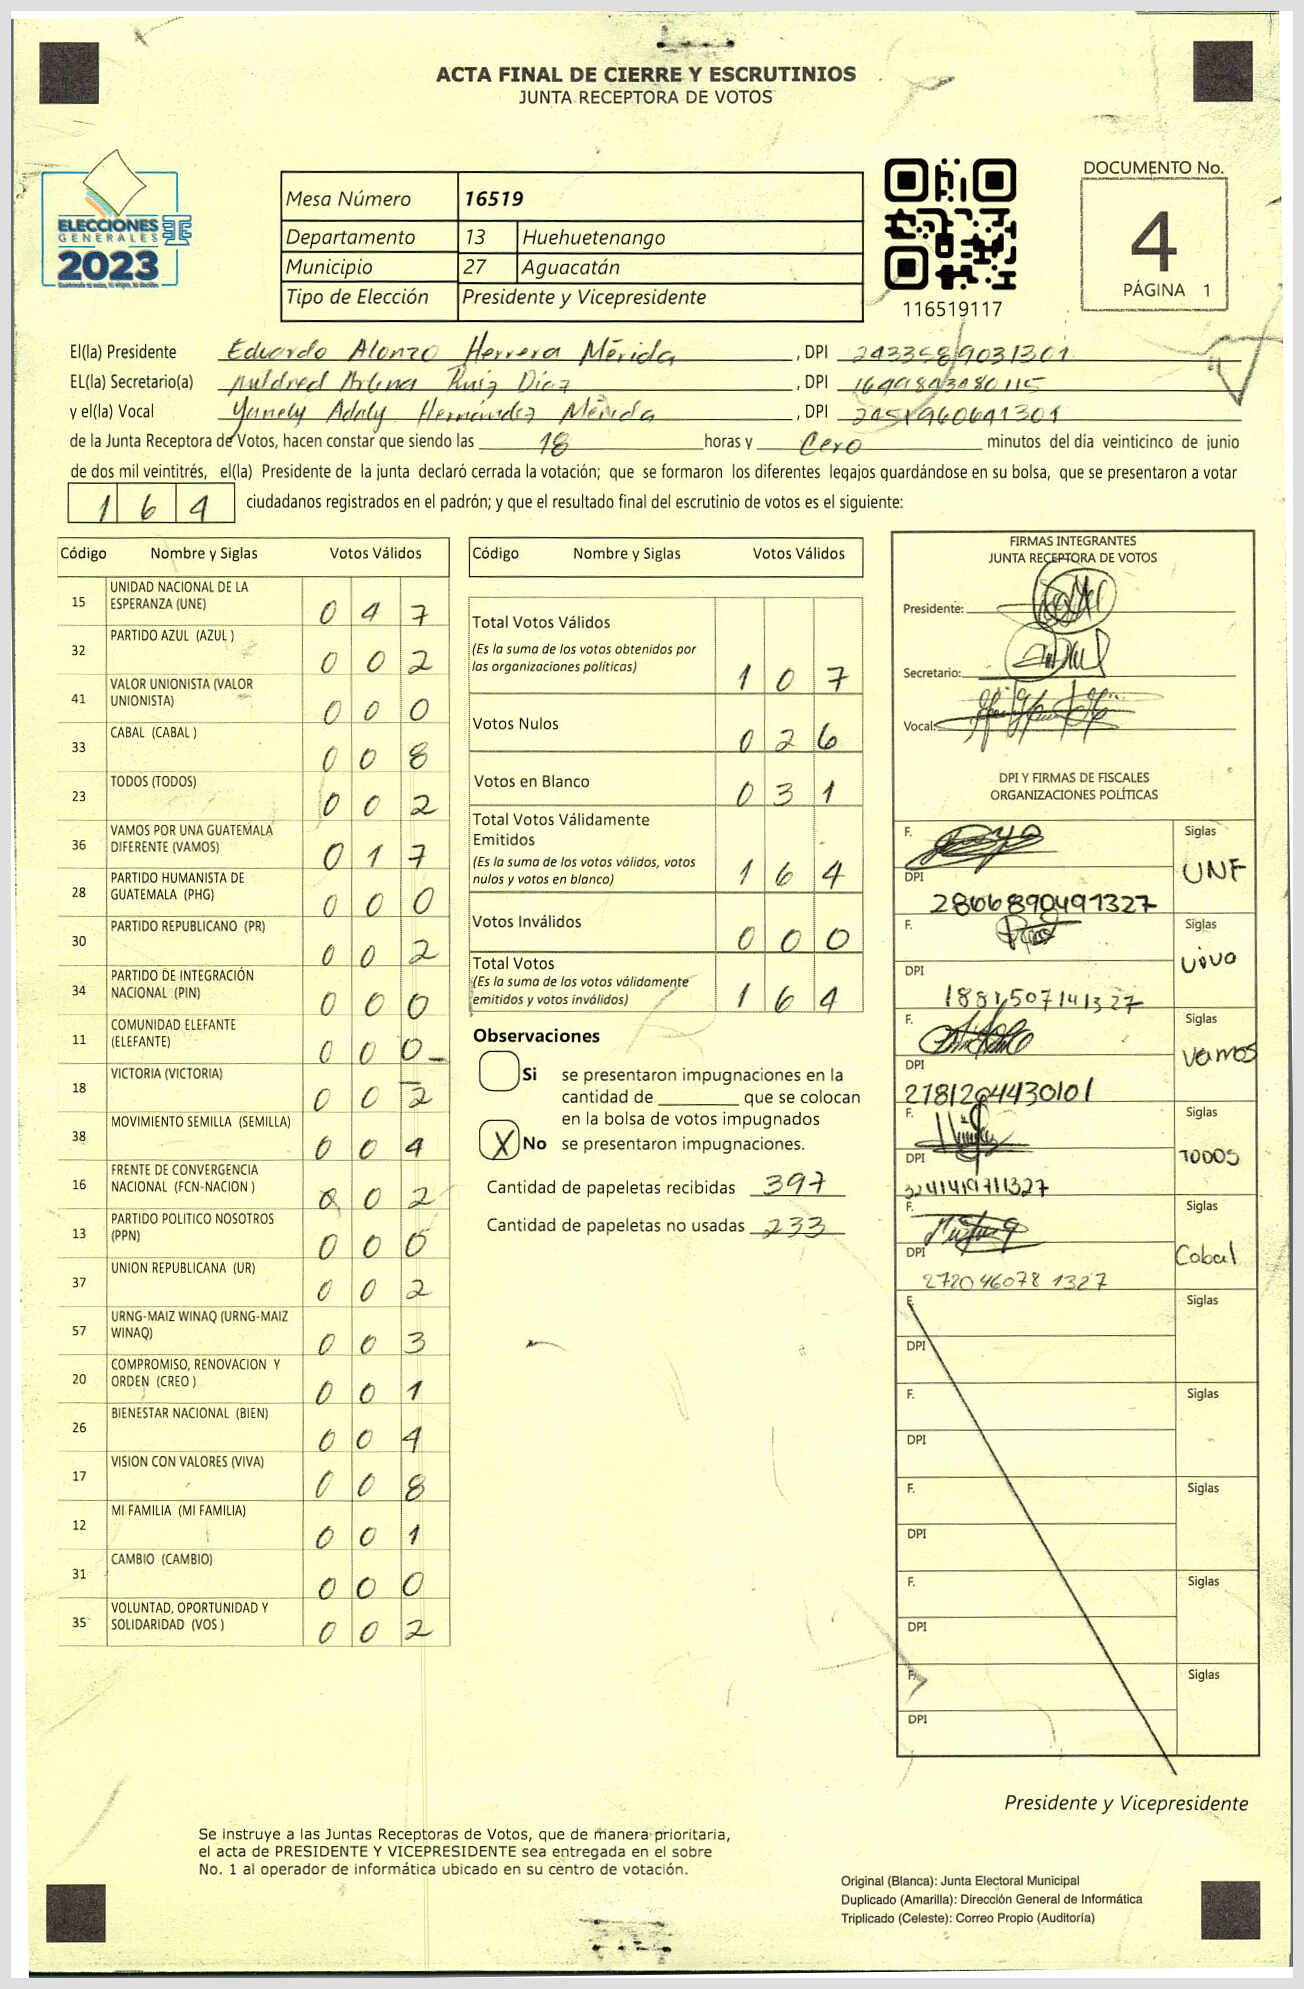 ACTA FINAL DE CIERRE Y ESCRUTINIOS
JUNTA RECEPTORA DE VOTOS
ELECCIONES
GENERALES
2023
Mesa Número 16519
Departamento 13 Huehuetenango
Municipio 27 Aguacatán
Tipo de Elección Presidente y Vicepresidente
116519117
DOCUMENTO No.
4
PÁGINA 1
El(la) Presidente Eduardo Alonzo Herrera Mérida , DPI 2433589031301
EL(la) Secretario(a) Mildred Arlena Ruiz Díaz , DPI
y el(la) Vocal Yanely Adaly Hernández Mérida , DPI 2451960641301
de la Junta Receptora de Votos, hacen constar que siendo las 18 horas y Cero minutos del día veinticinco de junio
de dos mil veintitrés, el(la) Presidente de la junta declaró cerrada la votación; que se formaron los diferentes legajos guardándose en su bolsa, que se presentaron a votar
164 ciudadanos registrados en el padrón; y que el resultado final del escrutinio de votos es el siguiente:
Código Nombre y Siglas Votos Válidos
15 UNIDAD NACIONAL DE LA
ESPERANZA (UNE) 0 4 7
32 PARTIDO AZUL (AZUL ) 0 0 2
41 VALOR UNIONISTA (VALOR
UNIONISTA) 0 0 0
33 CABAL (CABAL ) 0 0 8
23 TODOS (TODOS) 0 0 2
36 VAMOS POR UNA GUATEMALA
DIFERENTE (VAMOS) 0 1 7
28 PARTIDO HUMANISTA DE
GUATEMALA (PHG) 0 0 0
30 PARTIDO REPUBLICANO (PR) 0 0 2
34 PARTIDO DE INTEGRACIÓN
NACIONAL (PIN) 0 0 0
11 COMUNIDAD ELEFANTE
(ELEFANTE) 0 0 0
18 VICTORIA (VICTORIA) 0 0 2
38 MOVIMIENTO SEMILLA (SEMILLA) 0 0 4
16 FRENTE DE CONVERGENCIA
NACIONAL (FCN-NACION ) 0 0 2
13 PARTIDO POLITICO NOSOTROS
(PPN) 0 0 0
37 UNION REPUBLICANA (UR) 0 0 2
57 URNG-MAIZ WINAQ (URNG-MAIZ
WINAQ) 0 0 3
20 COMPROMISO, RENOVACION Y
ORDEN (CREO ) 0 0 1
26 BIENESTAR NACIONAL (BIEN) 0 0 4
17 VISION CON VALORES (VIVA) 0 0 8
12 MI FAMILIA (MI FAMILIA) 0 0 1
31 CAMBIO (CAMBIO) 0 0 0
35 VOLUNTAD, OPORTUNIDAD Y
SOLIDARIDAD (VOS ) 0 0 2
Código Nombre y Siglas Votos Válidos
Total Votos Válidos
(Es la suma de los votos obtenidos por
las organizaciones políticas) 1 0 7
Votos Nulos 0 2 6
Votos en Blanco 0 3 1
Total Votos Válidamente
Emitidos
(Es la suma de los votos válidos, votos
nulos y votos en blanco) 1 6 4
Votos Inválidos 0 0 0
Total Votos
(Es la suma de los votos válidamente
emitidos y votos inválidos) 1 6 4
Observaciones
Si se presentaron impugnaciones en la
cantidad de ________ que se colocan
en la bolsa de votos impugnados
X No se presentaron impugnaciones.
Cantidad de papeletas recibidas 397
Cantidad de papeletas no usadas 233
FIRMAS INTEGRANTES
JUNTA RECEPTORA DE VOTOS
Presidente:
Secretario:
Vocal:
DPI Y FIRMAS DE FISCALES
ORGANIZACIONES POLÍTICAS
F. Siglas
UNE
DPI
2866890491327
F. Siglas
vivo
DPI
1881507141327
F. Siglas
Vamos
DPI
2781294430101
F. Siglas
TODOS
DPI
3241419711327
F. Siglas
Cabal
DPI
272046078 1327
F. Siglas
DPI
F. Siglas
DPI
F. Siglas
DPI
F. Siglas
DPI
F. Siglas
DPI
Presidente y Vicepresidente
Se instruye a las Juntas Receptoras de Votos, que de manera prioritaria,
el acta de PRESIDENTE Y VICEPRESIDENTE sea entregada en el sobre
No. 1 al operador de informática ubicado en su centro de votación.
Original (Blanca): Junta Electoral Municipal
Duplicado (Amarilla): Dirección General de Informática
Triplicado (Celeste): Correo Propio (Auditoría)